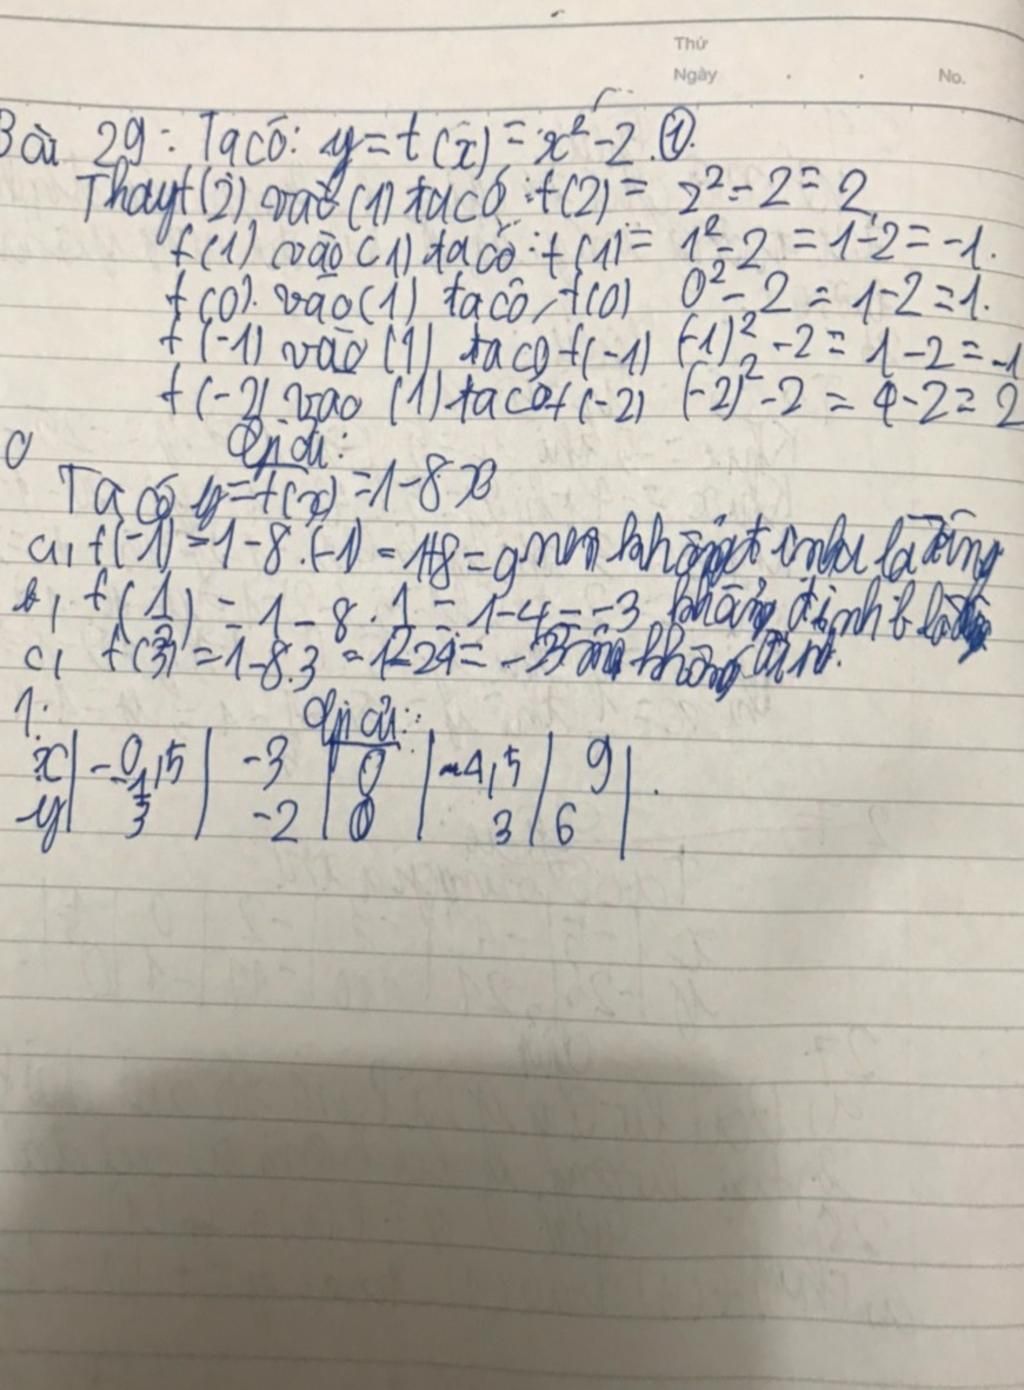 Thứ
Ngày . . No.
Bài 29: Ta có: y=f(x)=x²-2 (1).
Thay f(2) vào (1) ta có: f(2) = 2²-2=2
f(1) vào (1) ta có: f(1)= 1²-2 = 1-2=-1.
f(0). vào (1) ta có, f(0) 0²-2 = 1-2=1.
f(-1) vào (1) ta có f(-1) (-1)²-2= 1-2=-1
f(-2) vào (1) ta có f(-2) (-2)²-2 = 4-2=2
0 Giải:
Ta có y=f(x)=1-8x
a, f(-1)=1-8.(-1)=1+8=9 nên là đúng
b, f(1/2)=1-8.1/2=1-4=-3 khẳng định b là
c, f(3)=1-8.3=1-24=
1: Giải:
x | -0,5 | -3 | 0 | -4,5 | 9 |.
y | -1/3 | -2 | 0 | 3 | 6 |